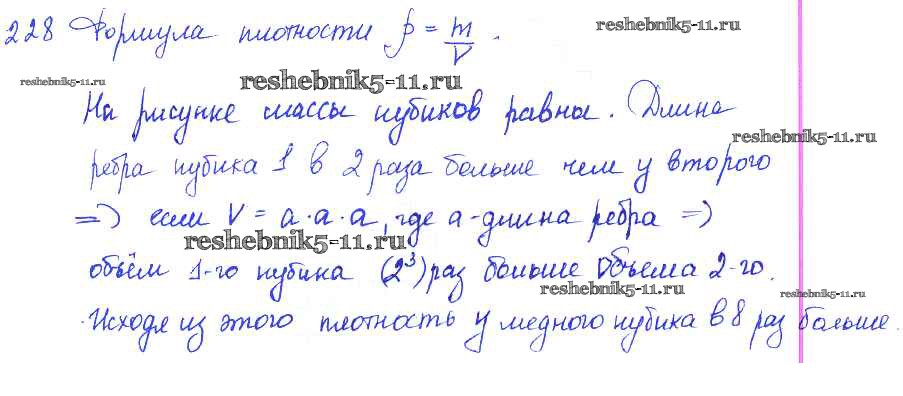 228 Формула плотности ρ = m/V.
reshebnik5-11.ru
reshebnik5-11.ru
reshebnik5-11.ru
На рисунке массы кубиков равны. Длина
reshebnik5-11.ru
ребра кубика 1 в 2 раза больше чем у второго
=> если V = a·a·a, где a-длина ребра =>
reshebnik5-11.ru
объём 1-го кубика (2³) раз больше объема 2-го.
reshebnik5-11.ru
reshebnik5-11.ru
Исходя из этого плотность у медного кубика в 8 раз больше.